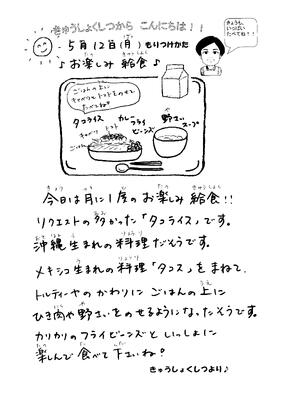 きゅうしょくしつから こんにちは！！
きょうも、
いっぱい
たべてね！！
5月12日(月)もりつけかた
♪お楽しみ 給食♪
ごはんの上に
キャベツとトマトをのせて
たべてね♡
タコライス
カレー
フライ
ビーンズ
野さい
スープ
キャベツ
トマト
ごはん
今日は月に1度のお楽しみ給食！！
リクエストの多かった「タコライス」です。
沖縄生まれの料理だそうです。
メキシコ生まれの料理「タコス」をまねて、
トルティーヤのかわりに ごはんの上に
ひき肉や野さいをのせるようになったそうです。
カリカリのフライビーンズといっしょに
楽しんで食べて下さいね♡
きゅうしょくしつより♪